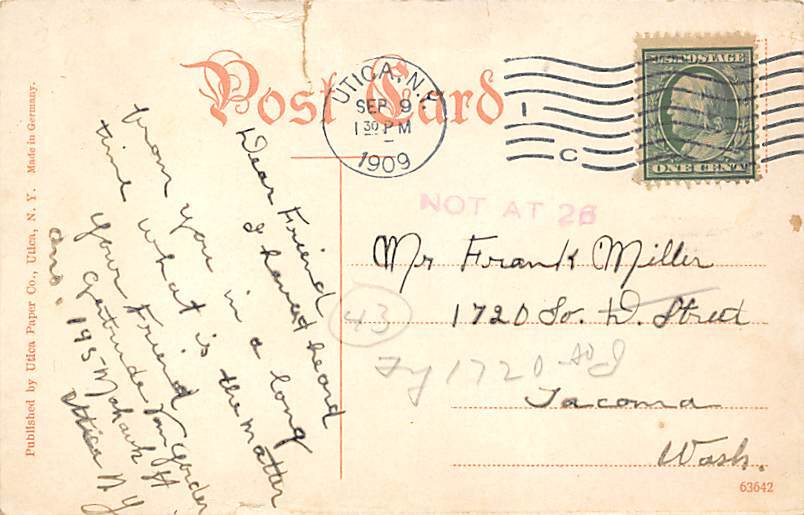 Post Card
UTICA, N.Y.
SEP 9
1 30 PM
1909
1
C
U.S. POSTAGE
ONE CENT
NOT AT 26
Dear Friend
I havent heard
from you in a long
time what is the matter
Your Friend
Gertrude
Ans. 195 Mohawk St
Utica N Y
Mr Frank Miller
1720 So. D. Street
Tacoma
Wash.
43
Try 1720 So J
Published by Utica Paper Co., Utica, N. Y. Made in Germany.
63642